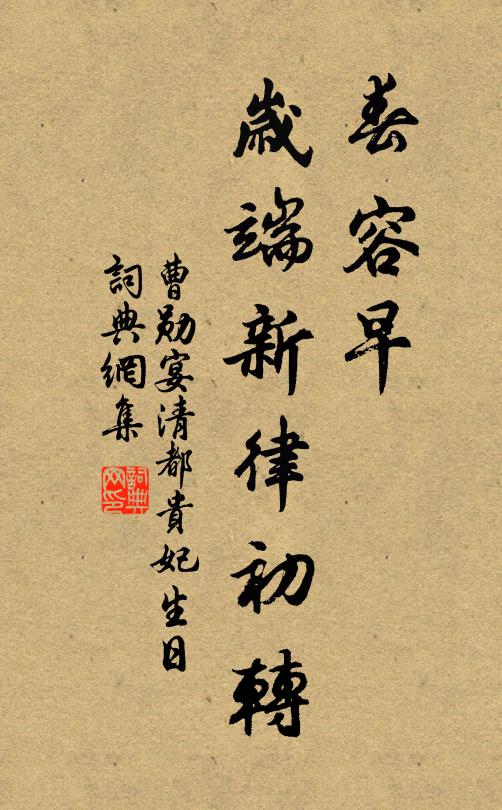 春容早
歲端新律初轉
曹勛宴清都貴妃生日
詞典網集
詞典
網印